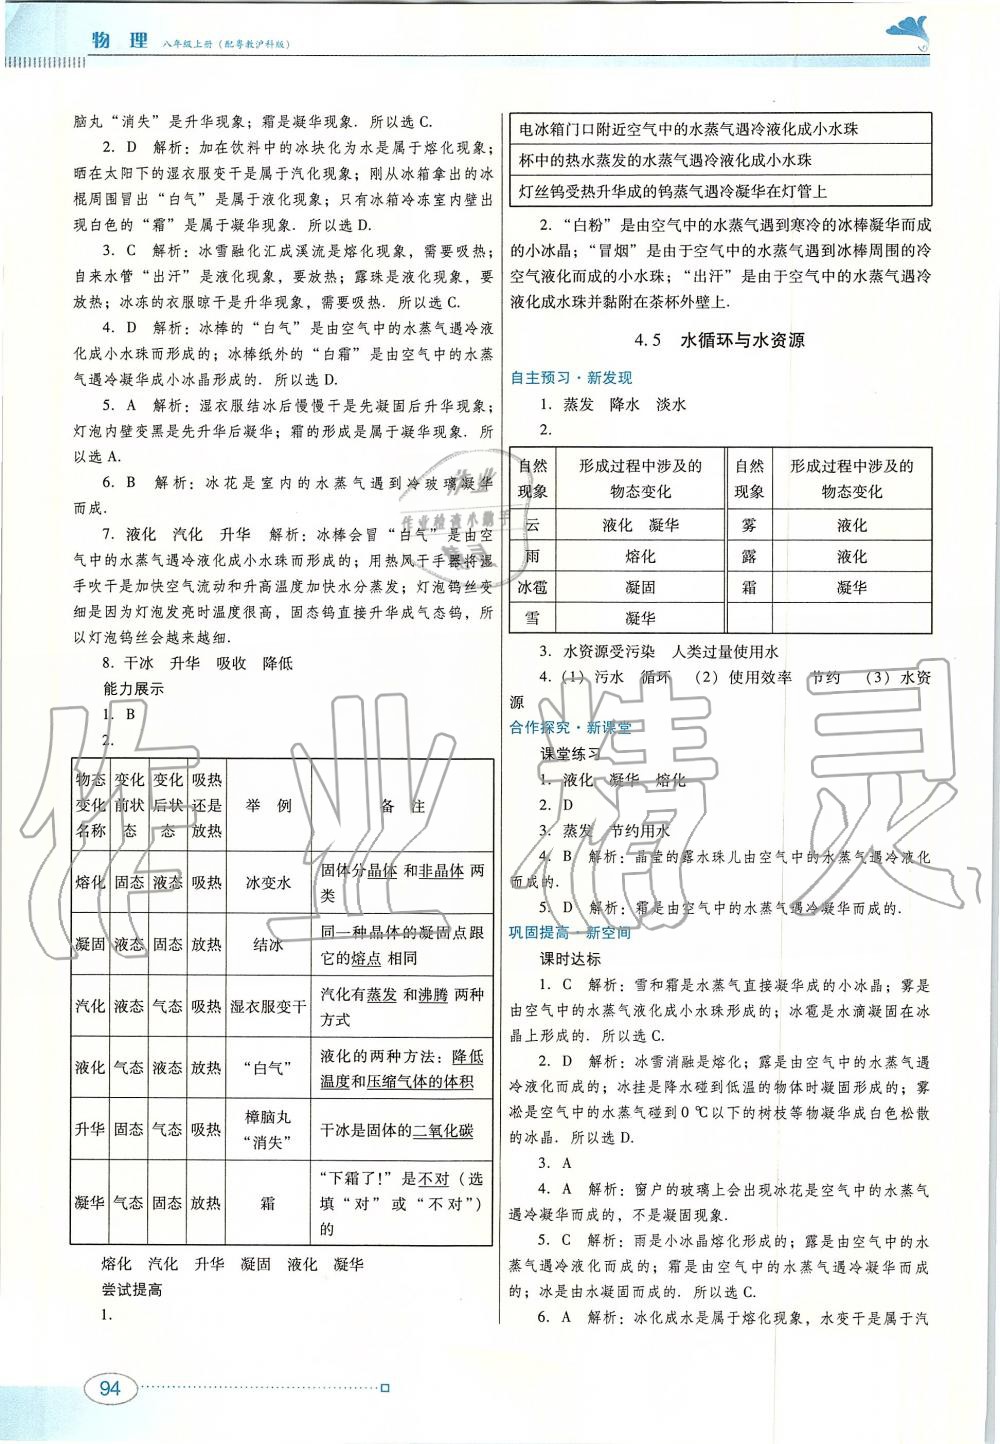 物 理 八年级上册(配粤教沪科版)
脑丸“消失”是升华现象;霜是凝华现象. 所以选C.
2. D 解析:加在饮料中的冰块化为水是属于熔化现象;
晒在太阳下的湿衣服变干是属于汽化现象;刚从冰箱拿出的冰
棍周围冒出“白气”是属于液化现象;只有冰箱冷冻室内壁出
现白色的“霜”是属于凝华现象. 所以选D.
3. C 解析:冰雪融化汇成溪流是熔化现象,需要吸热;
自来水管“出汗”是液化现象,要放热;露珠是液化现象,要
放热;冰冻的衣服晾干是升华现象,需要吸热. 所以选C.
4. D 解析:冰棒的“白气”是由空气中的水蒸气遇冷液
化成小水珠而形成的;冰棒纸外的“白霜”是由空气中的水蒸
气遇冷凝华成小冰晶形成的. 所以选D.
5. A 解析:湿衣服结冰后慢慢干是先凝固后升华现象;
灯泡内壁变黑是先升华后凝华;霜的形成是属于凝华现象. 所
以选A.
6. B 解析:冰花是室内的水蒸气遇到冷玻璃凝华
而成.
7. 液化 汽化 升华 解析:冰棒会冒“白气”是由空
气中的水蒸气遇冷液化成小水珠而形成的;用热风干手器将湿
手吹干是加快空气流动和升高温度加快水分蒸发;灯泡钨丝变
细是因为灯泡发亮时温度很高,固态钨直接升华成气态钨,所
以灯泡钨丝会越来越细.
8. 干冰 升华 吸收 降低
能力展示
1. B
2.
物态变化名称 变化前状态 变化后状态 吸热还是放热 举 例 备 注
熔化 固态 液态 吸热 冰变水 固体分晶体 和非晶体 两类
凝固 液态 固态 放热 结冰 同一种晶体的凝固点跟它的熔点 相同
汽化 液态 气态 吸热 湿衣服变干 汽化有蒸发 和沸腾 两种方式
液化 气态 液态 放热 “白气” 液化的两种方法:降低温度和压缩气体的体积
升华 固态 气态 吸热 樟脑丸“消失” 干冰是固体的二氧化碳
凝华 气态 固态 放热 霜 “下霜了!”是不对(选填“对”或“不对”)的
熔化 汽化 升华 凝固 液化 凝华
尝试提高
1.
电冰箱门口附近空气中的水蒸气遇冷液化成小水珠
杯中的热水蒸发的水蒸气遇冷液化成小水珠
灯丝钨受热升华成的钨蒸气遇冷凝华在灯管上
2. “白粉”是由空气中的水蒸气遇到寒冷的冰棒凝华而成
的小冰晶;“冒烟”是由于空气中的水蒸气遇到冰棒周围的冷
空气液化而成的小水珠;“出汗”是由于空气中的水蒸气遇冷
液化成水珠并黏附在茶杯外壁上.
4.5 水循环与水资源
自主预习·新发现
1. 蒸发 降水 淡水
2.
自然现象 形成过程中涉及的物态变化 自然现象 形成过程中涉及的物态变化
云 液化 凝华 雾 液化
雨 熔化 露 液化
冰雹 凝固 霜 凝华
雪 凝华
3. 水资源受污染 人类过量使用水
4. (1) 污水 循环 (2) 使用效率 节约 (3) 水资
源
合作探究·新课堂
课堂练习
1. 液化 凝华 熔化
2. D
3. 蒸发 节约用水
4. B 解析:晶莹的露水珠儿由空气中的水蒸气遇冷液化
而成的.
5. D 解析:霜是由空气中的水蒸气遇冷凝华而成的.
巩固提高·新空间
课时达标
1. C 解析:雪和霜是水蒸气直接凝华成的小冰晶;雾是
由空气中的水蒸气液化成小水珠形成的;冰雹是水滴凝固在冰
晶上形成的. 所以选C.
2. D 解析:冰雪消融是熔化;露是由空气中的水蒸气遇
冷液化而成的;冰挂是降水碰到低温的物体时凝固形成的;雾
凇是空气中的水蒸气碰到0 ℃以下的树枝等物凝华成白色松散
的冰晶. 所以选D.
3. A
4. A 解析:窗户的玻璃上会出现冰花是空气中的水蒸气
遇冷凝华而成的,不是凝固现象.
5. C 解析:雨是小冰晶熔化形成的;露是由空气中的水
蒸气遇冷液化而成的;霜是由空气中的水蒸气遇冷凝华而成
的;冰是由水凝固而成的. 所以选C.
6. A 解析:冰化成水是属于熔化现象,水变干是属于汽
94
作业精灵
作业
作业检查小助手
精灵